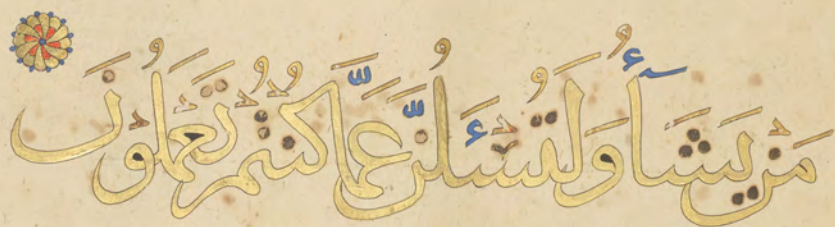 مَنْ يَّشَآءُ وَلَتُسْـَٔلُنَّ عَمَّا كُنْتُمْ تَعْمَلُونَ